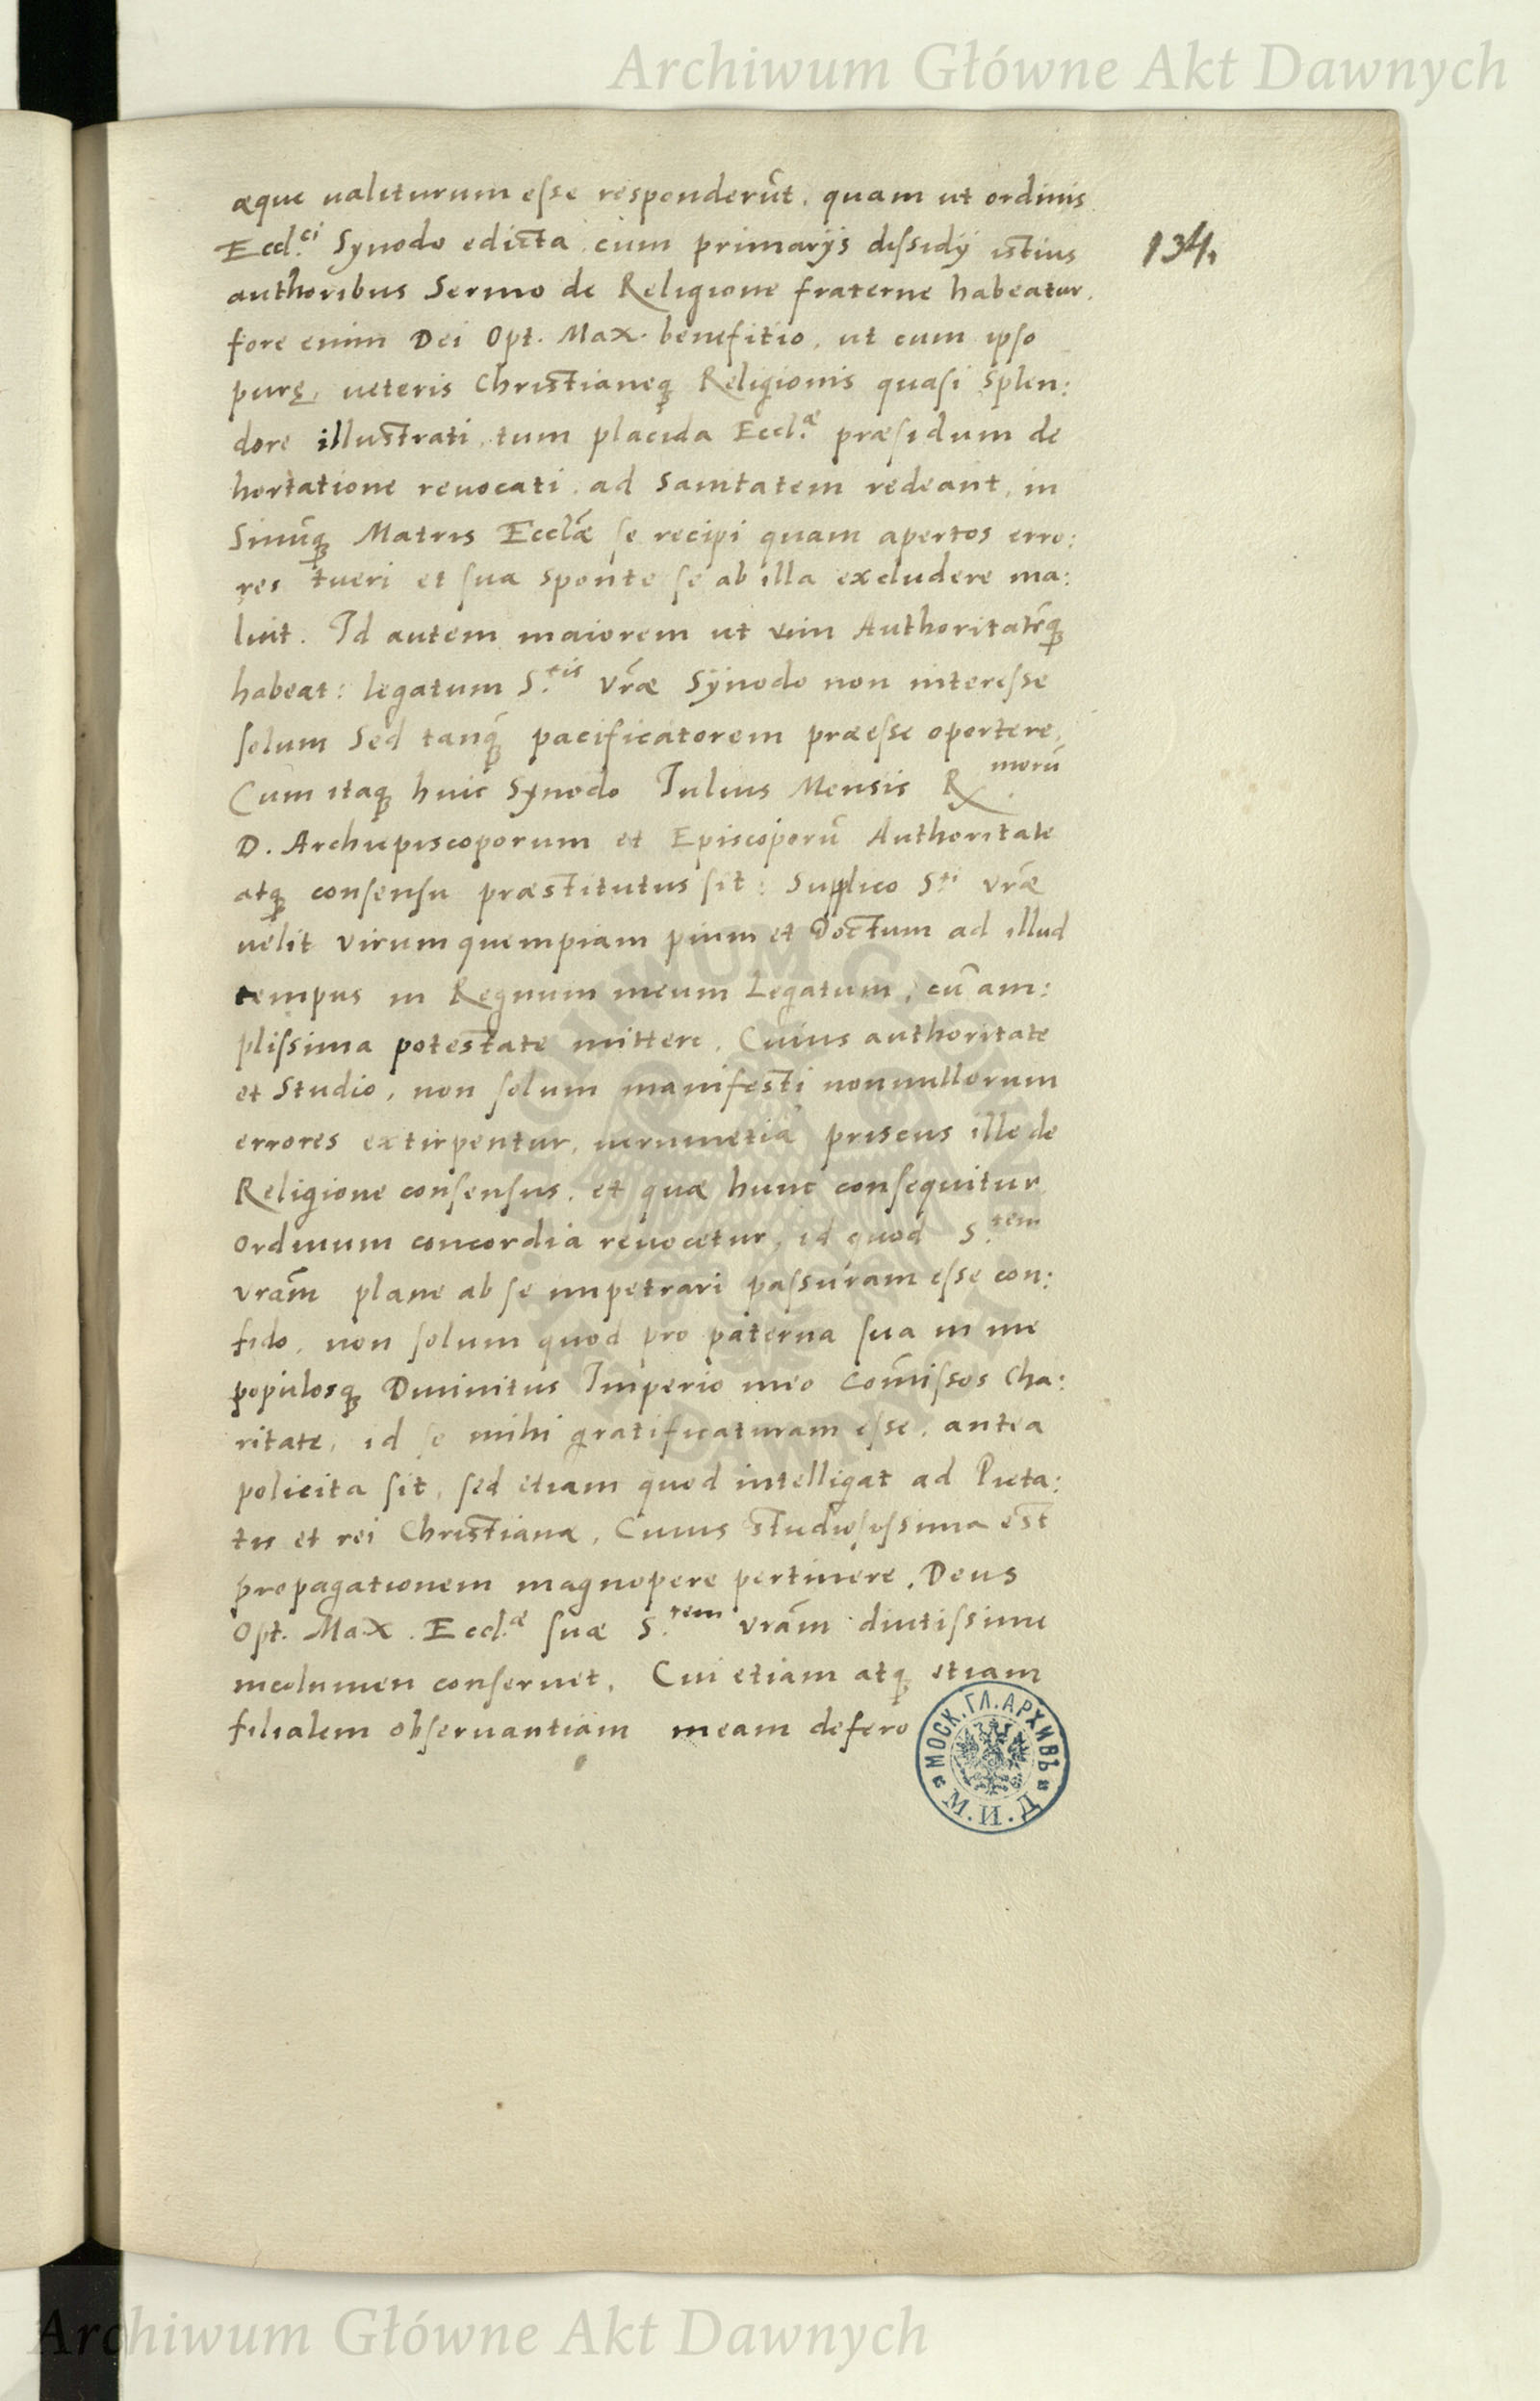 Archiwum Główne Akt Dawnych
æque ualiturum esse responderūt, quam ut ordinis
Eccl.ci Synodo edicta, cum primarijs dissidij istius
134.
authoribus Sermo de Religione fraterne habeatur,
fore enim Dei Opt. Max. benefitio, ut cum ipso
purę, ueteris Christianeq; Religionis quasi Splen:
dore illustrati, tum placida Eccl.æ præsidum de
hortatione reuocati, ad Sanitatem redeant, in
Sinūq; Matris Ecclæ se recipi quam apertos erro:
res tueri et sua sponte se ab illa excludere ma:
luit. Id autem maiorem ut uim Authoritatēq;
habeat: legatum S.tis Vræ Synodo non interesse
solum Sed tanq; pacificatorem præesse oportere,
Cum itaq; huic Synodo Iulius Mensis R.morū
D. Archiepiscoporum et Episcoporū Authoritate
atq; consensu præstitutus sit: Supplico S.ti Vræ
uelit virum quempiam pium et Doctum ad illud
tempus in Regnum meum Legatum, cū am:
plissima potestate mittere, Cuius authoritate
et Studio, non solum manifesti nonnullorum
errores extirpentur, uerumetiā priscus ille de
Religione consensus, et quæ hunc consequitur
ordinum concordia reuocetur, id quod S.tem
vram plane ab se impetrari passuram esse con:
fido, non solum quod pro paterna sua in me
populosq; Diuinitus Imperio meo comissos Cha:
ritate, id se mihi gratificaturam esse, antea
policita sit, sed etiam quod intelligat ad Pieta:
tis et rei Christianæ, Cuius studiosissima est
propagationem magnopere pertinere. Deus
Opt. Max. Eccl.æ suæ S.tem vram diutissime
incolumen conseruet, Cui etiam atq; etiam
filialem obseruantiam meam defero
МОСК.ГЛ.АРХИВЪ
М.И.Д.
ARCHIWUM GŁÓWNE
AKT DAWNYCH
Archiwum Główne Akt Dawnych